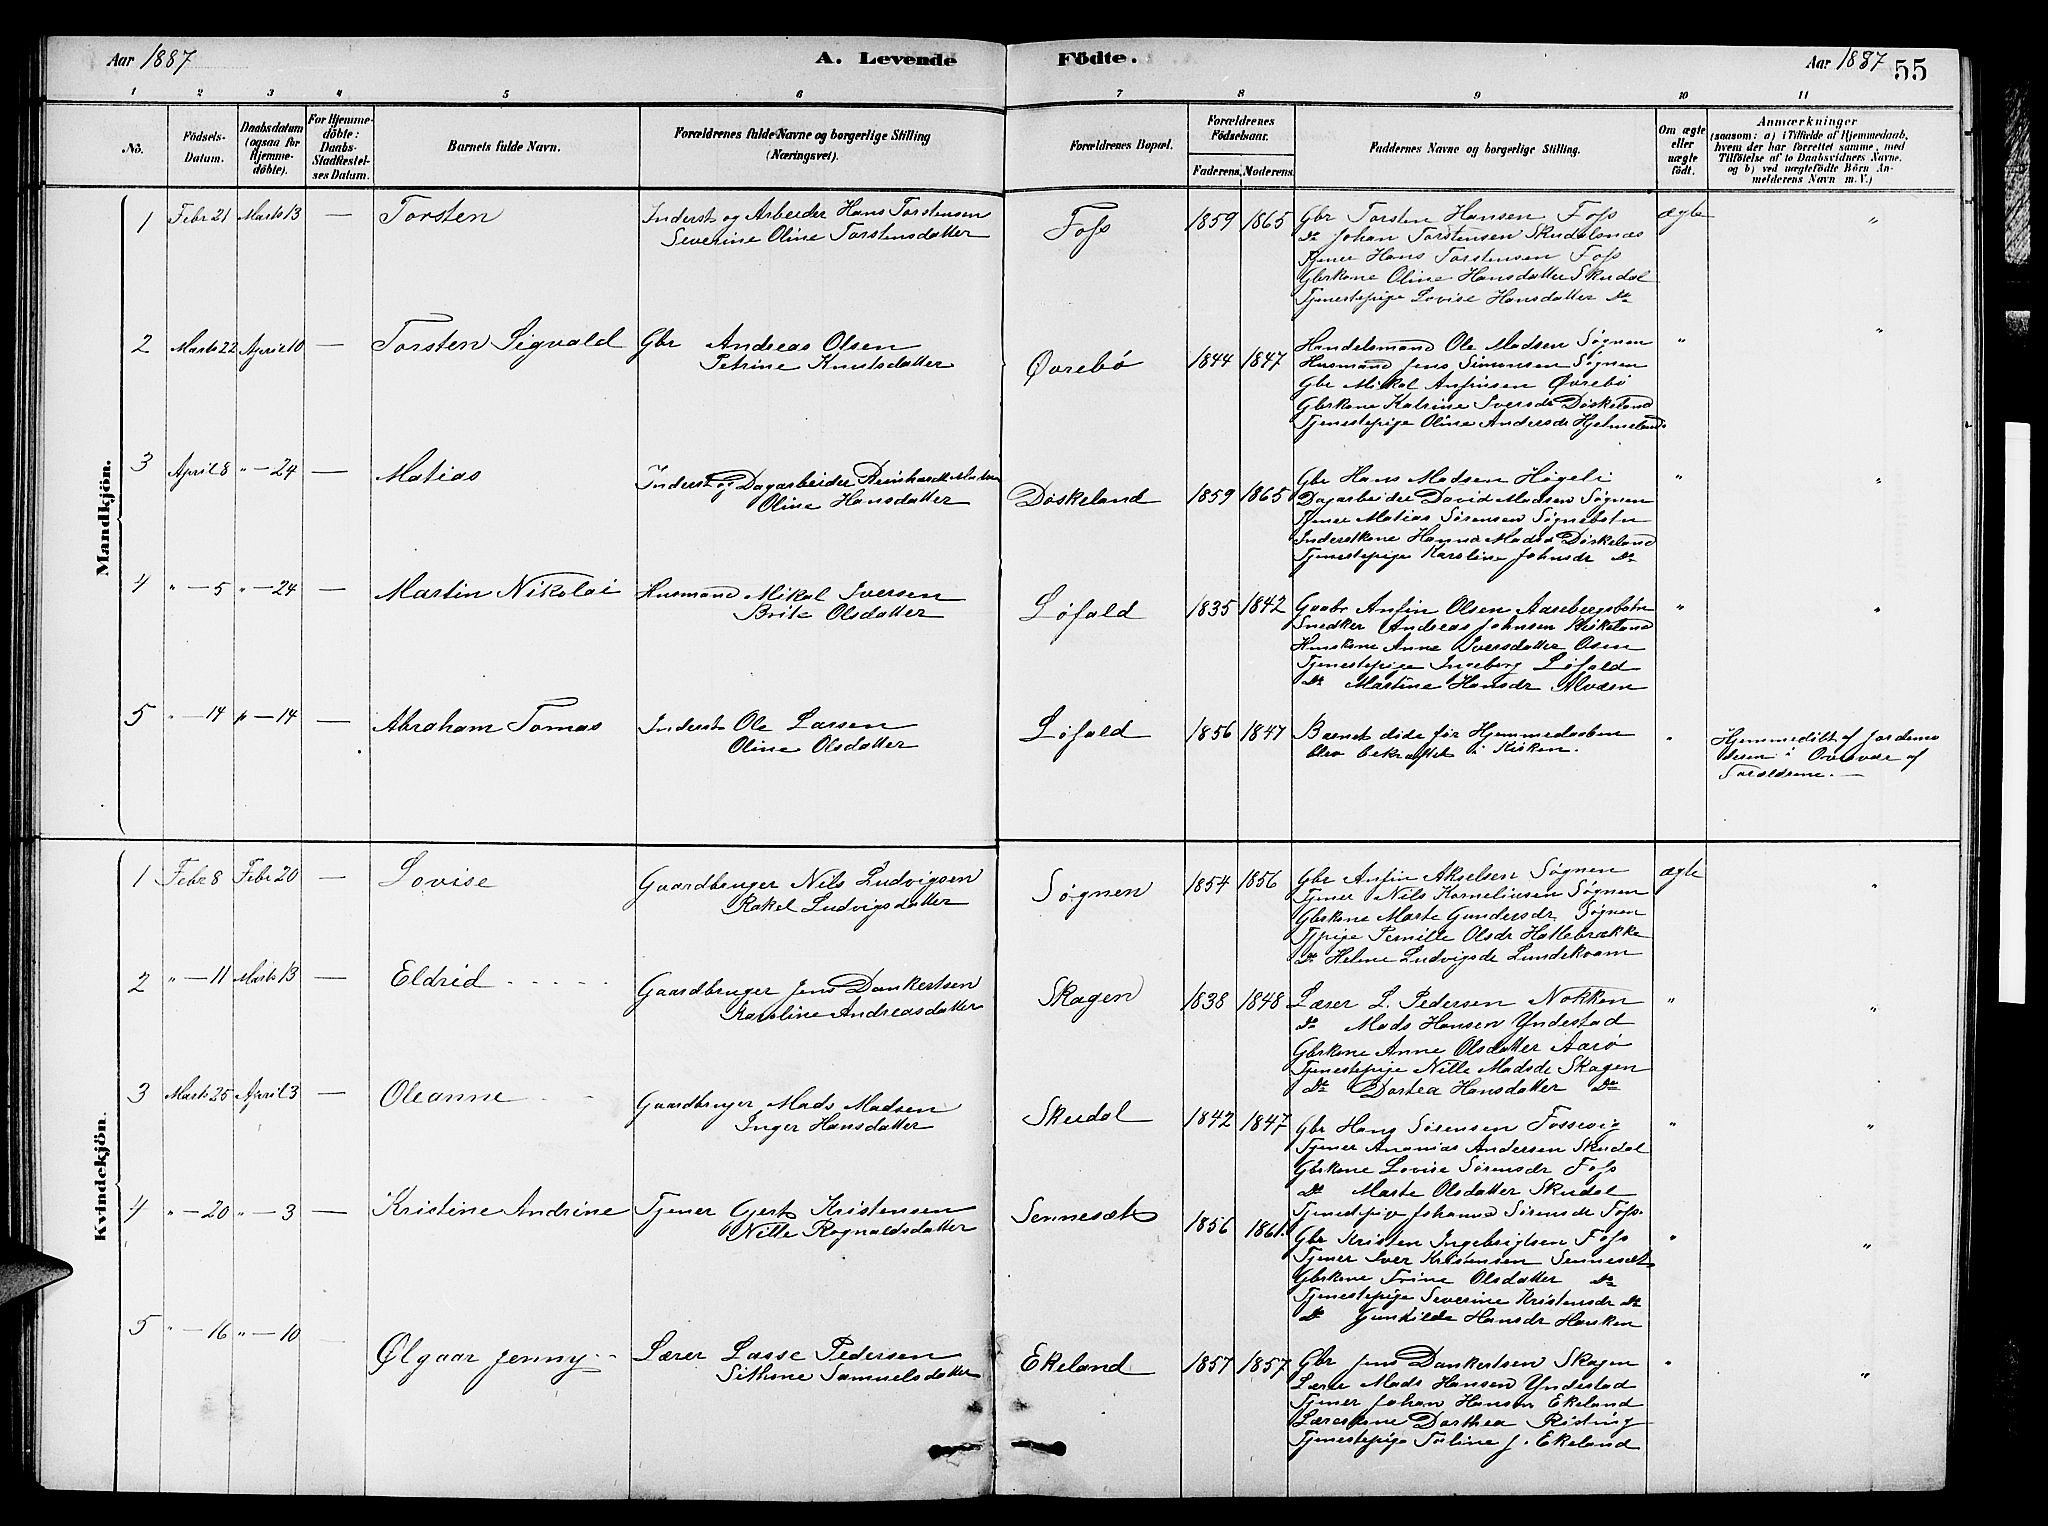 Aar 1887
A. Levende Födte.
Aar 1887 55
1 2 3 4 5 6 7 8 9 10 11
No.
Födsels-Datum.
Daabsdatum (ogsaa for Hjemme-döbte).
For Hjemme-döbte: Daabs-Stadfæstel-ses Datum.
Barnets fulde Navn.
Forældrenes fulde Navne og borgerlige Stilling (Næringsvei).
Forældrenes Bopæl.
Forældrenes Födselsaar.
Faderens. Moderens.
Faddernes Navne og borgerlige Stilling.
Om ægte eller uægte födt.
Anmærkninger
(saasom: a) i Tilfælde af Hjemmedaab, hvem der har forrettet samme, med Tilföielse af to Daabsvidners Navne, og b) ved uægtefödte Börn An-melderens Navn m. V.)
Mandkjön.
1 Febr 21 Marts 13 — Torsten
Inderst og Arbeider Hans Torstensen
Severine Oline Torstensdatter
Foss 1859 1865
Gbr Torsten Hansen Foss ægte "
Do Johan Torstensen Skudalsnæs
Tjener Hans Torstensen Foss
Gbrkone Oline Hansdatter Skudal
Tjenestepige Lovise Hansdatter Do
2 Marts 22 April 10 — Torsten Sigvald
Gbr Andreas Olsen
Petrine Knutsdatter
Øvrebö 1844 1847
Handelsmand Ole Madsen Søgnen " "
Husmand Jens Simonsen Søgnen
Gbr Mikal Anfinsen Øvrebö
Gbrkone Katrine Iversdr Döskeland
Tjenestepige Oline Andersdr Hjelmeland
3 April 8 " — 24 — Matias
Inderst og Dagarbeider Reinhardt Madsen
Oline Hansdatter
Döskeland 1859 1865
Gbr Hans Madsen Høgeli " "
Dagarbeider David Madsen Søgnen
Tjener Matias Sørensen Søgnebotn
Inderstkone Hanna Madsd Döskeland
Tjenestepige Karoline Johnsdr Do
4 " — 5 " — 24 — Martin Nikolai
Husmand Mikal Iversen
Brite Olsdatter
Löfald 1835 1842
Gaabr Anfin Olsen Aasebergsbotn " "
Snedker Andreas Johnsen
Huskone Anne Iversdatter Osen
Tjenestepige Ingeborg Löfald
Do Martine Hansdr
5 " — 14 " — 14 — Abraham Tomas
Inderst Ole Larsen
Oline Olsdatter
Löfald 1856 1847
Barnet döde før Hjemmedaaben "
blev bekræftet i Kirken.
Hjemmedöbt af Jordemo
deren i Overvær af
Forældrene. —
Kvindekjön
1 Febr 8 Febr 20 — Lovise
Gaardbruger Nils Ludvigsen
Rakel Ludvigsdatter
Søgnen 1854 1856
Gbr Anfin Akselsen Søgnen ægte "
Tjener Nils Korneliusen Søgnen
Gbrkone Marte Gundersdr Søgnen
Tjpige Pernille Olsdr Hattebrække
Do Helene Ludvigsdr Lundekvam
2 " — 11 Marts 13 — Eldrid
Gaardbruger Jens Dankertsen
Karoline Andreasdatter
Skagen 1838 1848
Lærer L. Pedersen Nokken " "
Do Mads Hansen Yndestad
Gbrkone Anne Olsdatter Aarö
Tjenestepige Nille Madsdr Skagen
Do Dortea Hansdatter Do
3 Marts 25 April 3 — Oleanne
Gaardbruger Mads Madsen
Inger Hansdatter
Skudal 1842 1847
Gbr Hans Sörensen Fossevig " "
Tjener Ananias Andersen Skudal
Gbrkone Lovise Sörensdr Foss
Do Marte Olsdatter Skudal
Tjenestepige Johanna Sörensdr Foss.
4 " — 20 " — 3 — Kristine Andrine
Tjener Gert Kristensen
Nille Rognaldsdatter
Sennesæt 1856 1861.
Gbr Kristen Ingebrigtsen Foss " "
Tjener Iver Kristensen Sennesæt
Gbrkone Trine Olsdatter Do
Tjenestepige Severine Kristensdr Do
Do Gunhilde Hansdr
5 " — 16 " — 10 Ølgaar Jenny
Lærer Lasse Pedersen
Sithene Samuelsdatter
Ekeland 1857 1857
Gbr Jens Dankertsen Skagen " "
Lærer Mads Hansen Yndestad
Tjener Johan Hansen Ekeland
Lærerkone Dorthea Risting
Tjenestepige Toline J. Ekeland